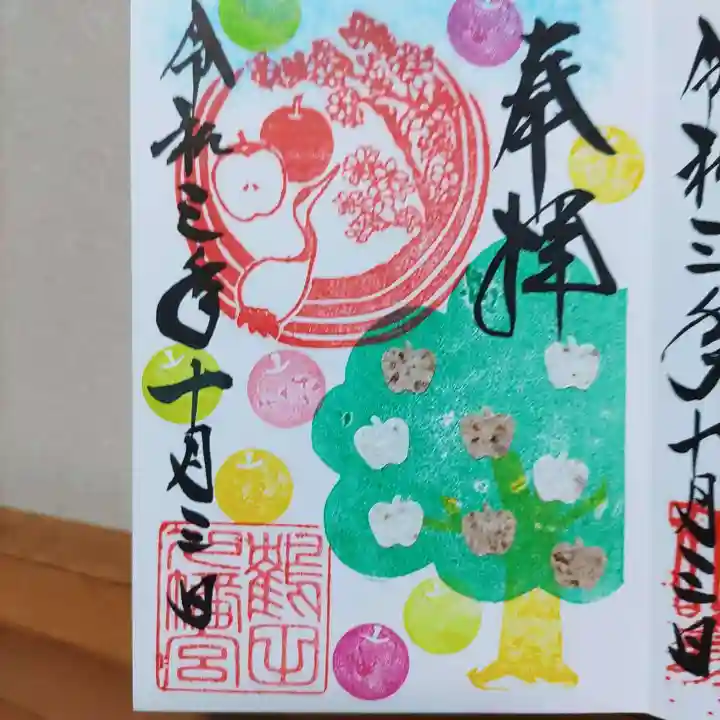 奉拝
令和三年十月三日
令和三年十月